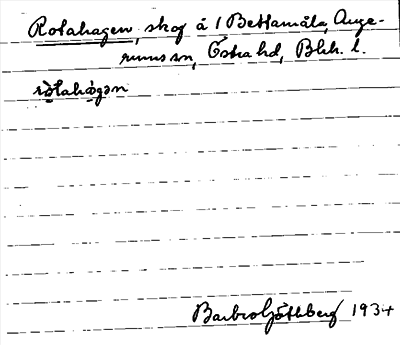 Rotahagen, skog å 1 Bettamåla, Auge-
rums sn, Östra hd, Blek. l.
ròtahàgən
Barbro Götlberg 1934